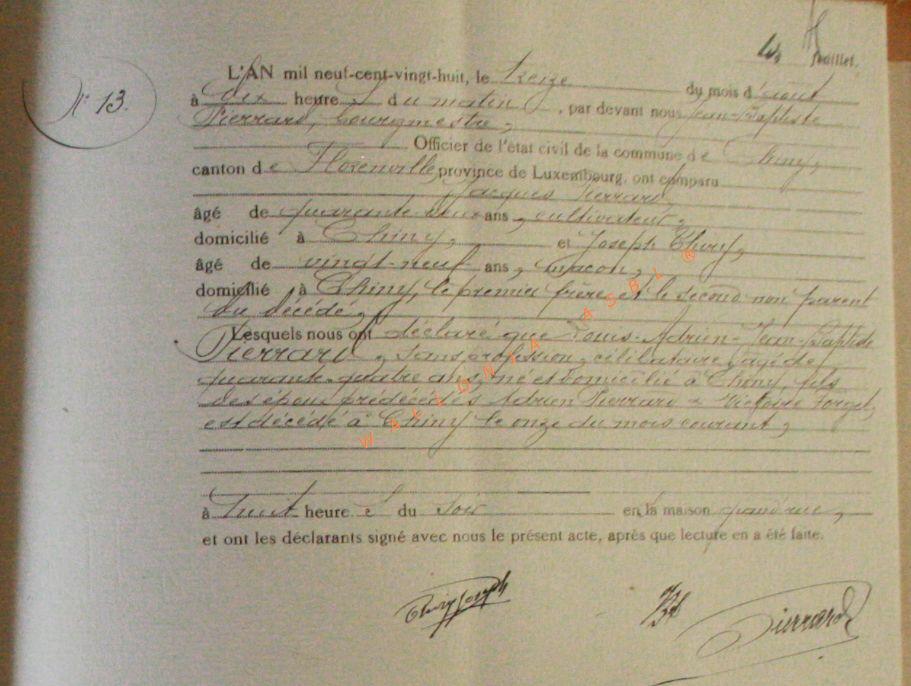 feuillet.
N° 13.
L'AN mil neuf-cent-vingt-huit, le treize du mois d'aout
à dix heure s du matin, par devant nous Jean-Baptiste
Pierrard, bourgmestre,
Officier de l'état civil de la commune de Chiny,
canton de Florenville, province de Luxembourg, ont comparu
Jacques Pierrard,
âgé de quarante ans, cultivateur,
domicilié à Chiny, et Joseph Thiry,
âgé de vingt-neuf ans, maçon,
domicilié à Chiny, le premier frère et le second non parent
du décédé,
Lesquels nous ont déclaré que Louis-Adrien-Jean-Baptiste
Pierrard, sans profession, célibataire, âgé de
quarante-quatre ans, né et domicilié à Chiny, fils
des époux prédécédés Adrien Pierrard & Victoire Forget,
est décédé à Chiny le onze du mois courant,
à huit heure s du soir en la maison grand'rue,
et ont les déclarants signé avec nous le présent acte, après que lecture en a été faite.
Thiry Joseph
Pierrard
WALLONIA ASBL ®